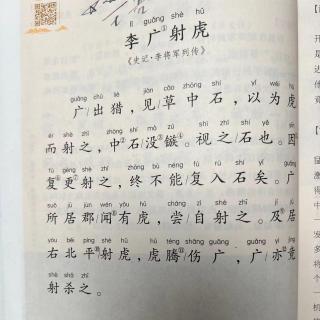 lǐ guǎng shè hǔ
李广①射虎
《史记·李将军列传》
guǎng chū liè jiàn cǎo zhōng shí yǐ wéi hǔ
广出猎，见草中石，以为虎
ér shè zhī zhòng shí mò zú shì zhī shí yě yīn
而射之，中石没镞。视之石也。因
fù gèng shè zhī zhōng bù néng fù rù shí yǐ guǎng
复更射之，终不能复入石矣。广
suǒ jū jùn wén yǒu hǔ cháng zì shè zhī jí jū
所居郡闻有虎，尝自射之。及居
yòu běi píng shè hǔ hǔ téng shāng guǎng guǎng yì jìng
右北平射虎，虎腾伤广，广亦竟
shè shā zhī
射杀之。